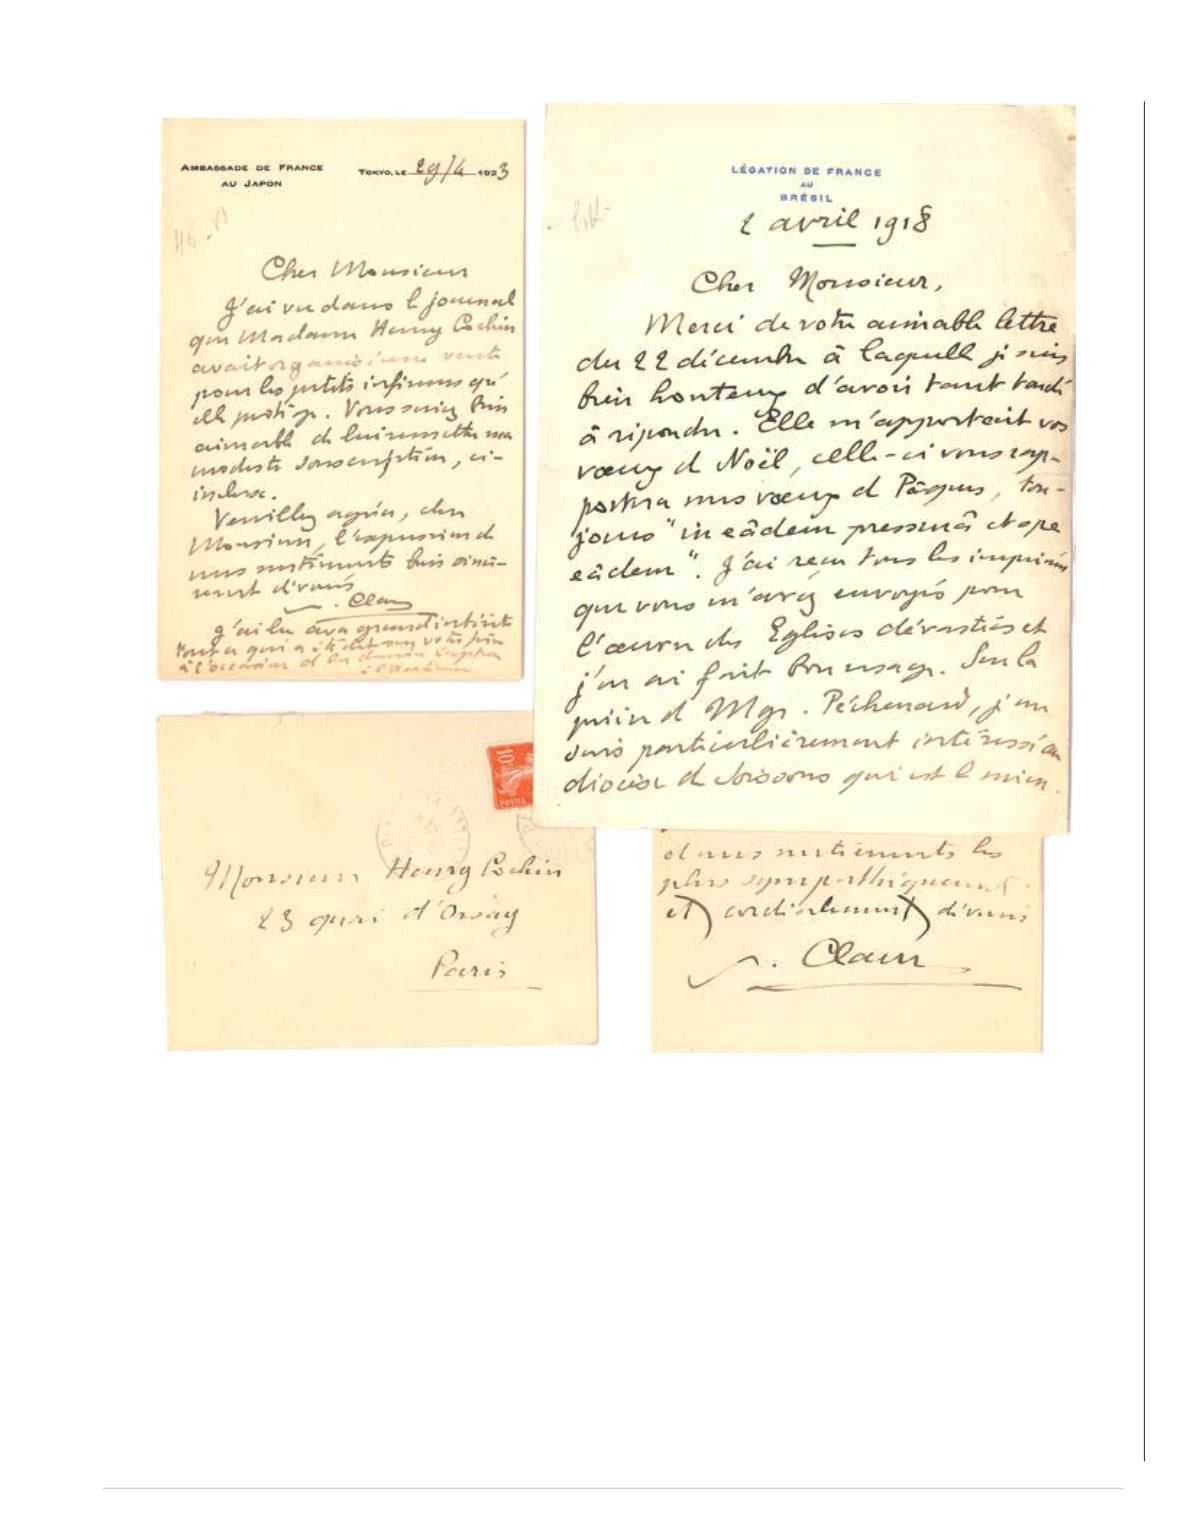 AMBASSADE DE FRANCE
AU JAPON
TOKYO, LE 29/4 1923
Cher Monsieur
J'ai vu dans le journal
que Madame Henry Cochin
avait organisé une vente
pour les petits infirmes qu'
elle protège. Vous seriez bien
aimable de lui remettre ma
modeste souscription, ci-
incluse.
Veuillez agréer, cher
Monsieur, l'expression de
mes sentiments bien sincè-
rement dévoués
Claudel
J'ai lu avec grand intérêt
tout ce qui a été dit sur votre
à l'occasion de la dernière
LÉGATION DE FRANCE
AU
BRÉSIL
2 avril 1918
Cher Monsieur,
Merci de votre aimable lettre
du 22 décembre à laquelle je suis
bien honteux d'avoir tant tardé
à répondre. Elle m'apportait vos
vœux de Noël, celle-ci vous rap-
portera mes vœux de Pâques, tou-
jours "in eâdem pressurâ et spe
eâdem". J'ai reçu tous les imprimés
que vous m'avez envoyés pour
l'œuvre des Eglises dévastées et
j'en ai fait bon usage. Sur la
prière de Mgr. Péchenard, je me
suis particulièrement intéressé au
diocèse de Soissons qui est le mien.
Monsieur Henry Cochin
23 quai d'Orsay
Paris
10c
POSTES
sentiments les
plus sympathiquement
et cordialement dévoués
Claudel